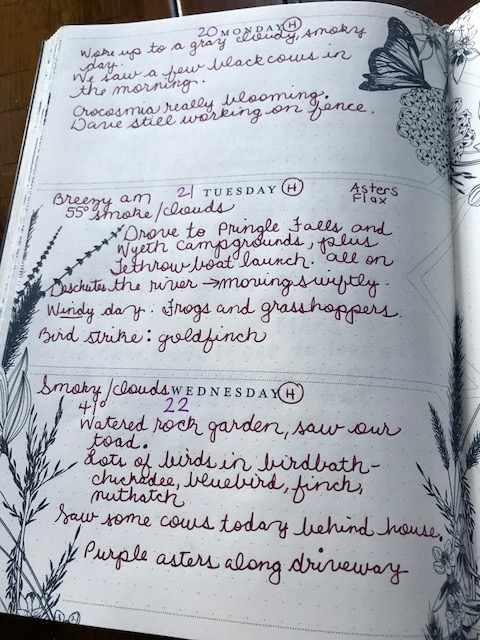 20 MONDAY H
Woke up to a gray cloudy, smoky
day.
We saw a few black cows in
the morning.
Crocosmia really blooming.
Dave still working on fence.
Breezy am 21 TUESDAY H Asters
55° smoke/clouds Flax
Drove to Pringle Falls and
Wyeth campgrounds, plus
Tethrow boat launch. All on
Deschutes the river → moving swiftly.
Windy day. Frogs and grasshoppers.
Bird strike: goldfinch
Smoky/clouds WEDNESDAY H
41° 22
Watered rock garden, saw our
toad.
Lots of birds in birdbath-
chickadee, bluebird, finch,
nuthatch
Saw some cows today behind house.
Purple asters along driveway